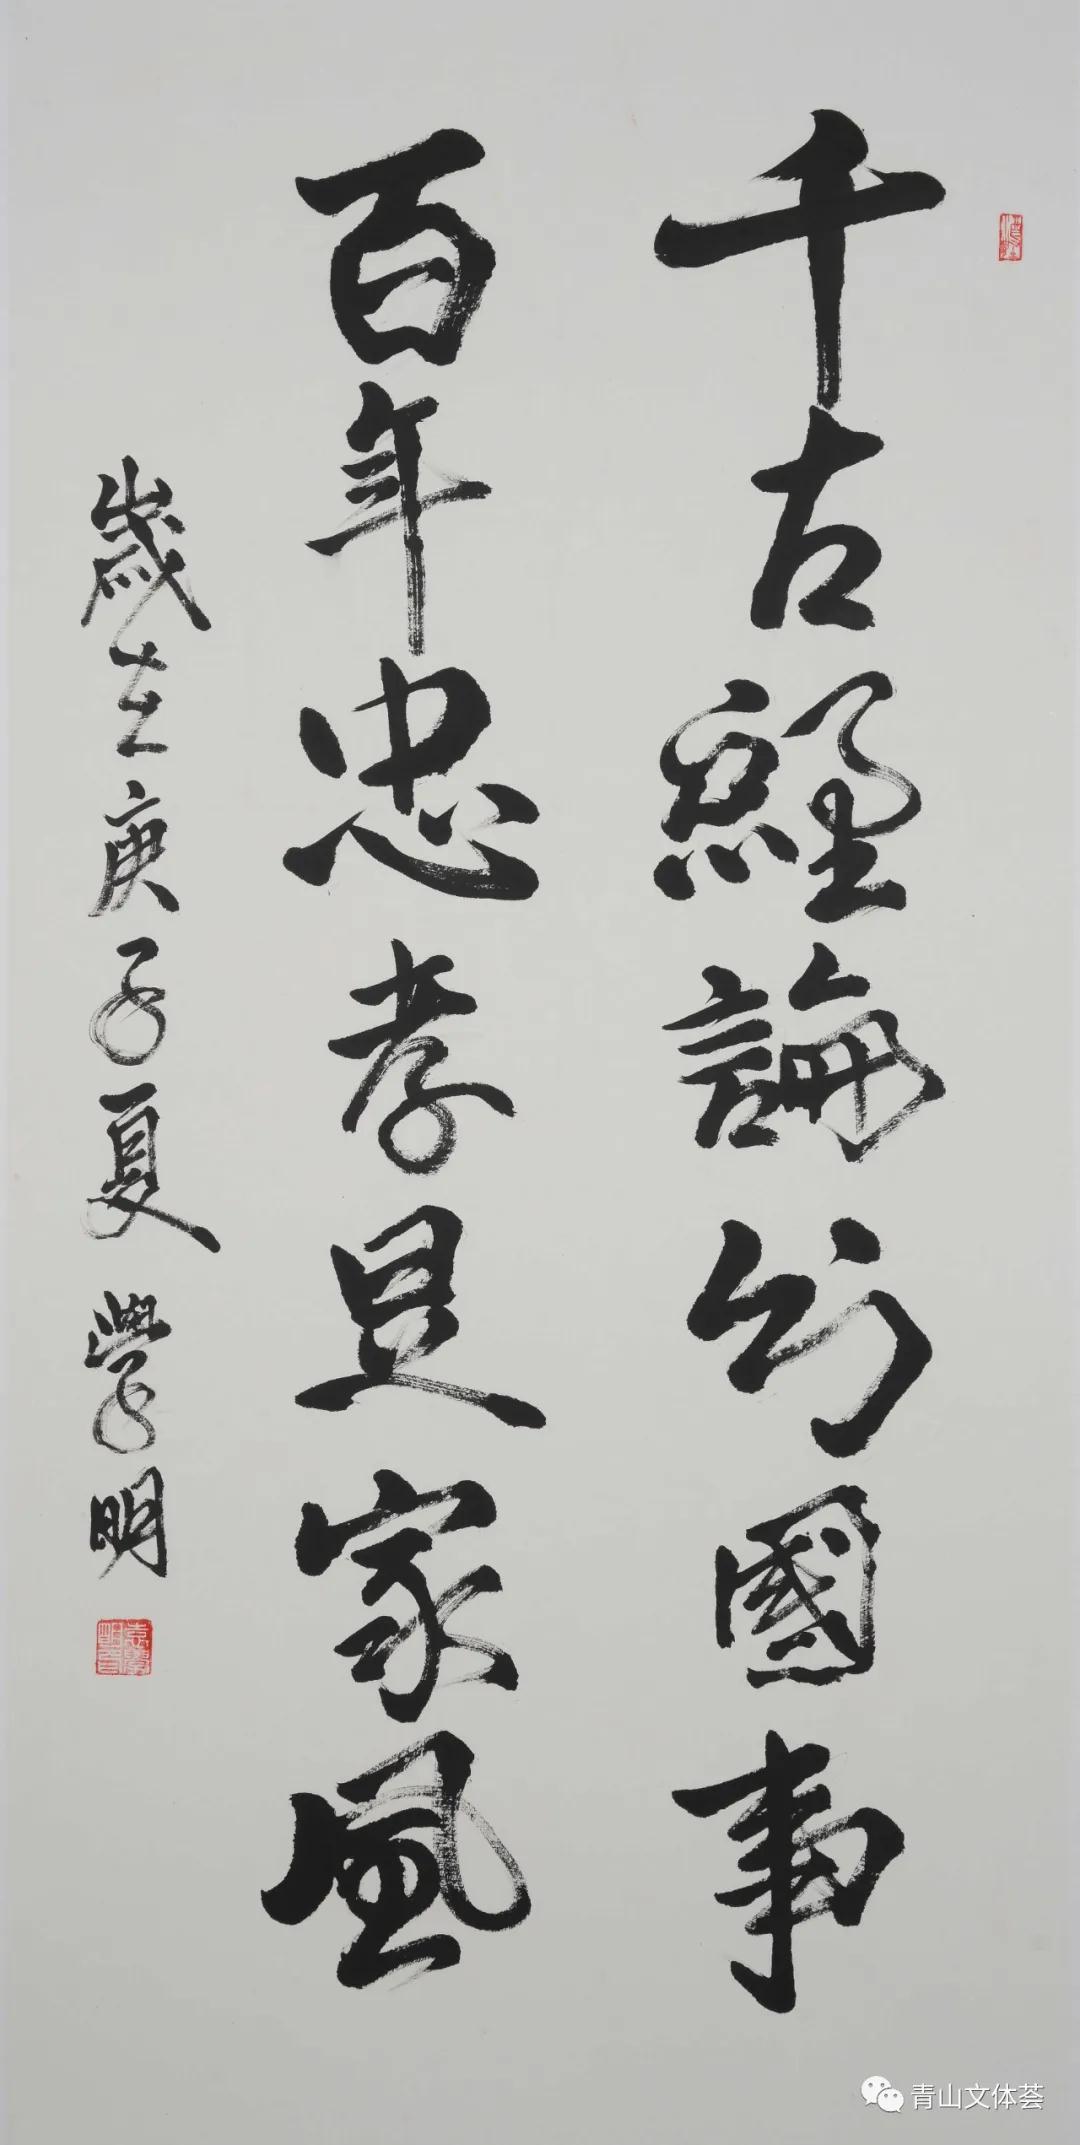 千古經論分國事
百年忠孝是家風
歲在庚子夏 學明
袁學明印
青山文体荟